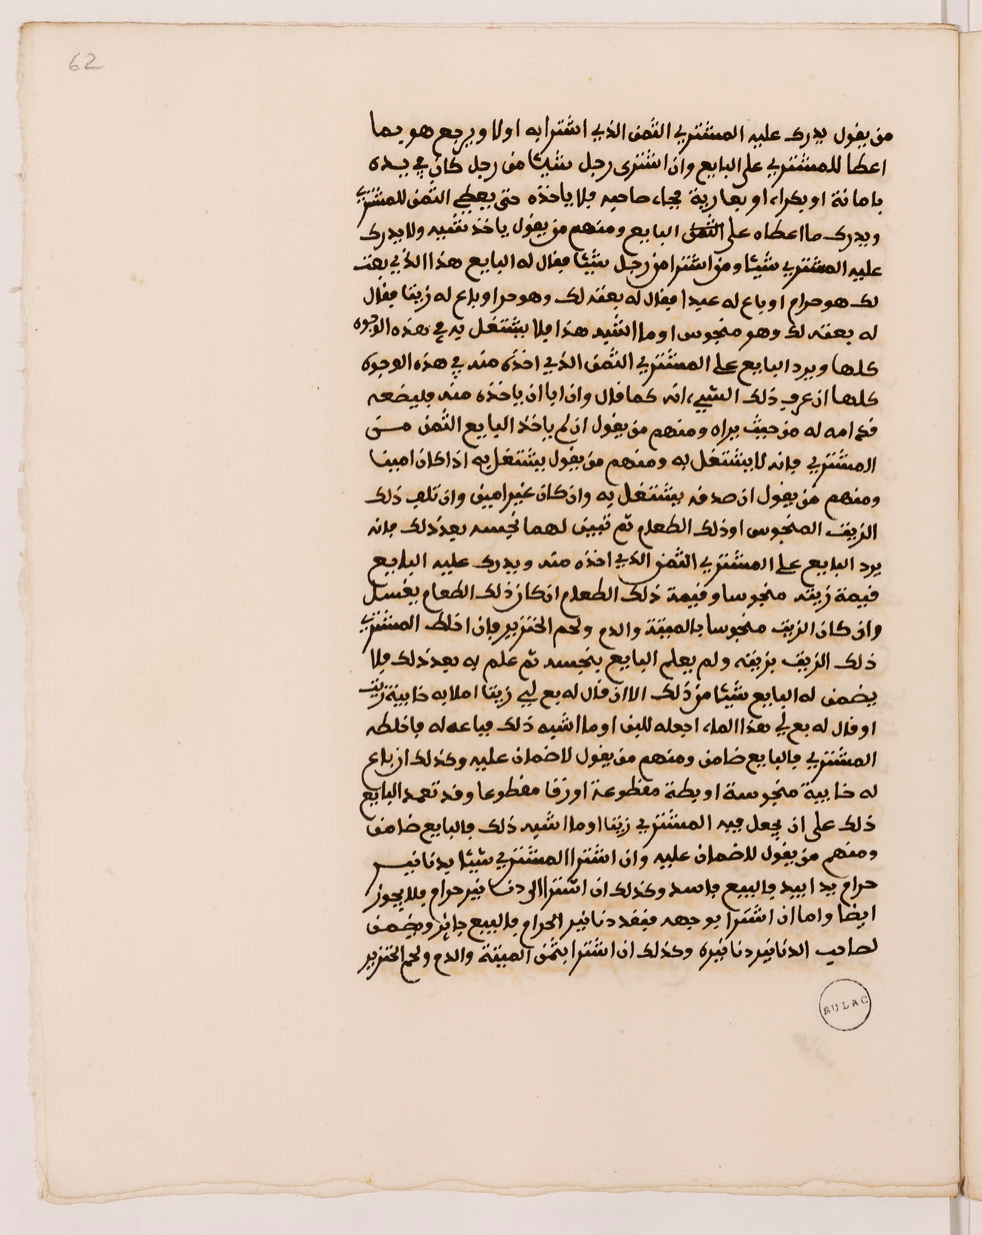 62
من يقول يدرك عليه المشتري الثمن الذي اشترا به اولا ويرجع هو بما
اعطا للمشتري على البايع وان اشترى رجل شيئا من رجل كان في يده
بامانة او بكراء او بعارية فجاء صاحبه فلا ياخذه حتى يعطي الثمن للمشتري
ويدرك ما اعطاه على البايع ومنهم من يقول ياخذ شيه ولا يدرك
عليه المشتري شيئا ومن اشترا من رجل شيئا فقال له البايع هذا الذي بعت
لك هو حرام او باع له عبدا فقال له بعته لك وهو حر او باع له زيتا فقال
له بعته لك وهو منجوس او ما اشبه هذا فلا يشتغل به في هذه الوجوه
كلها ويرد البايع على المشتري الثمن الذي اخذه منه في هذه الوجوه
كلها ان عرف ذلك الشيء انه كما قال وان ابا ان ياخذه منه فليضعه
قدامه له من حيث يراه ومنهم من يقول ان لم ياخذ البايع الثمن من
المشتري فانه لا يشتغل به ومنهم من يقول يشتغل به اذا كان امينا
ومنهم من يقول ان صدقه يشتغل به وان كان غير امين وان تلف ذلك
الزيت المنجوس او ذلك الطعام ثم تبين لهما نجسه بعد ذلك فانه
يرد البايع على المشتري الثمن الذي اخذه منه ويدرك عليه البايع
قيمة زيته منجوسا وقيمة ذلك الطعام ان كان ذلك الطعام يغسل
وان كان الزيت منجوسا بالميتة والدم ولحم الخنزير فان اخلط المشتري
ذلك الزيت بزيته ولم يعلم البايع بنجسه ثم علم به بعد ذلك فلا
يضمن له البايع شيئا من ذلك الا ان قال له بع لي زيتا املا به خابية زيت
او قال له بع لي هذا الماء اجعله للبن او ما اشبه ذلك فباعه له فاخلطه
المشتري فالبايع ضامن ومنهم من يقول لا ضمان عليه وكذلك ان باع
له خابية منجوسة او بطة مقطوعة او زقا مقطوعا وقد تعمد البايع
ذلك على ان يجعل فيه المشتري زيتا او ما اشبه ذلك فالبايع ضامن
ومنهم من يقول لا ضمان عليه وان اشترا المشتري شيئا بدنانير
حرام يدا بيد فالبيع فاسد وكذلك ان اشترا الى دنانير حرام فلا يجوز
ايضا واما ان اشترا بوجهه فنقد دنانير الحرام فالبيع جائز ويضمن
لصاحب الدنانير دنانيره وكذلك ان اشترا بثمن الميتة والدم ولحم الخنزير
BULAC